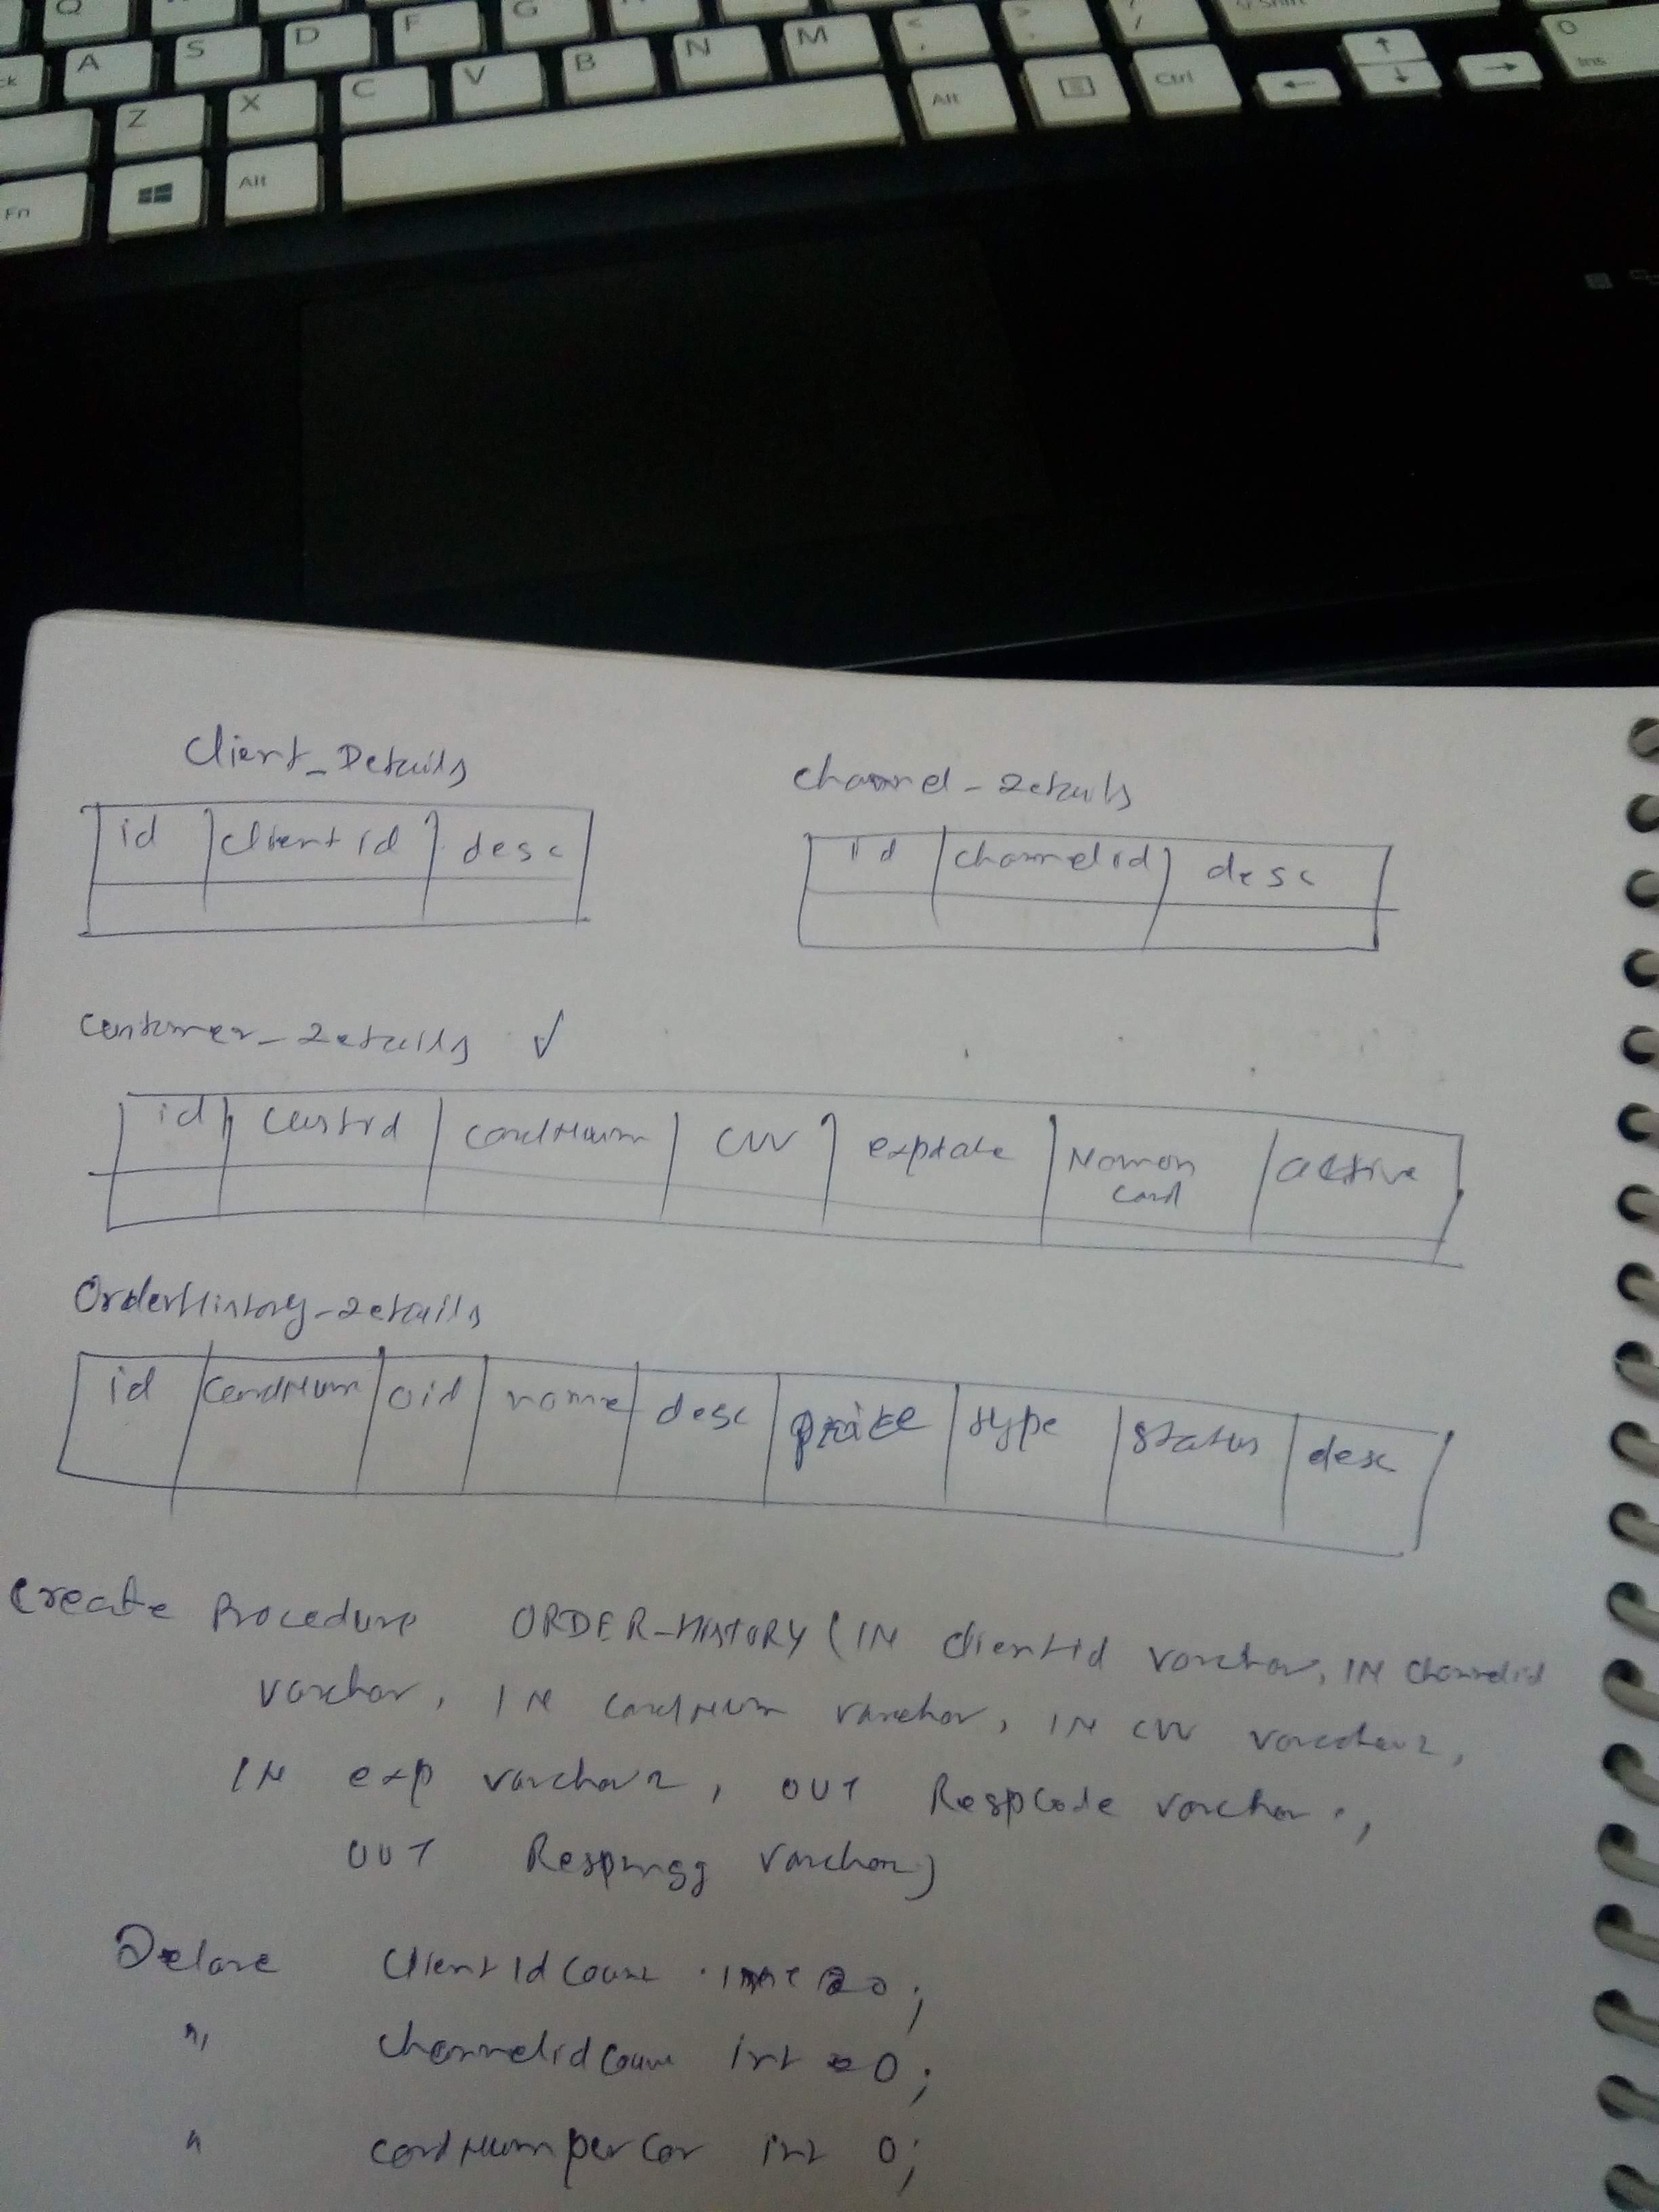 Q G
A S D F G
ck A S D F
Z X C V B N M < , > . / Shift
Fn Alt Alt Ctrl ← ↑ ↓ → 0 Ins
Client_Details
id clientid desc
channel-Details
id channelid desc
customer-Details ✓
id custid cardNum CVV expdate Nameon card active
OrderHistory-Details
id cardNum oid name desc price type status desc
Create Procedure ORDER-HISTORY (IN clientid varchar, IN channelid
varchar, IN cardNum varchar, IN CVV varchar2,
IN exp varchar2, OUT RespCode varchar,
OUT Respmsg varchar)
Delare clientIdCount int 0;
" channelidCount int 0;
" cardNum int 0;